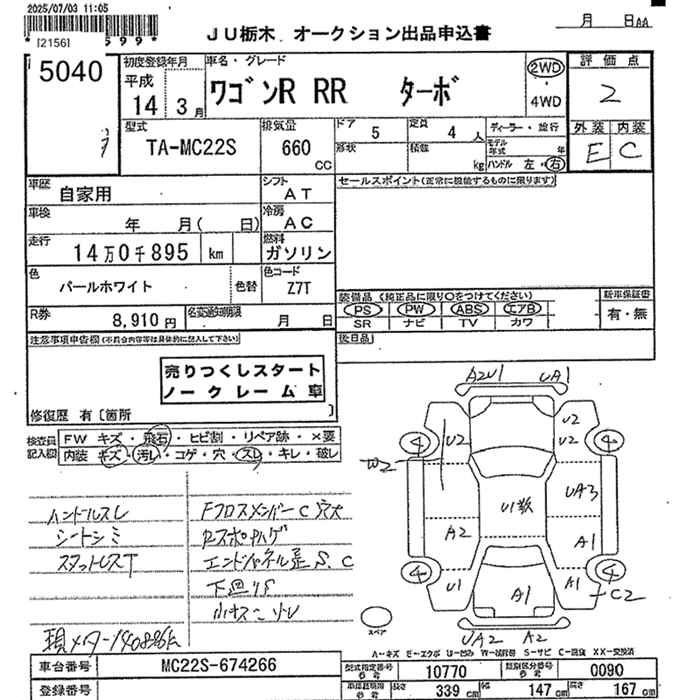 2025/07/03 11:05
*[2156] 599*
JU栃木 オークション出品申込書
月 日AA
5040
初度登録年月
平成
14 3月
車名・グレード
ワゴンR RR ターボ
2WD
4WD
評価点
2
外装 内装
E C
型式
TA-MC22S
排気量
660
CC
ドア 5
定員 4人
ディーラー・並行
形状
積載 kg
モデル年式 年
ハンドル 左・右
車歴
自家用
シフト
AT
セールスポイント(正常に機能するものに限ります)
車検
年 月( 日)
冷房
AC
走行
14万0千895 km
燃料
ガソリン
色
パールホワイト
色替
色コード
Z7T
R券
8,910円
名変通知期限
月 日
装備品(純正品に限り○をつけてください)
PS PW ABS エアB
SR ナビ TV カワ
新車保証書
有・無
後日品
注意事項申告欄(不具合内容等は具体的に記入して下さい)
売りつくしスタート
ノークレーム車
修復歴 有〔箇所 〕
検査員記入欄
FW キズ・飛石・ヒビ割・リペア跡・×要
内装 キズ・汚レ・コゲ・穴・スレ・キレ・破レ
ハンドルスレ
シートシミ
スタットレスT
FクロスメンバーC穴大
エンドパネル歪S.C
下回りS
現メーター140886km
A2U1 UA1
U2
U2
U2
W2
U1数
UA3
A2
A1
U1
A1
A1
C2
UA2 A2
4
4
4
4
スペア
A-キズ E-エクボ U-凹み W-補修跡 S-サビ C-腐蝕 XX-交換済
車台番号
MC22S-674266
登録番号
型式指定番号
10770
類別区分番号
0090
車検証記載
長さ 339 cm
幅 147 cm
高さ 167 cm